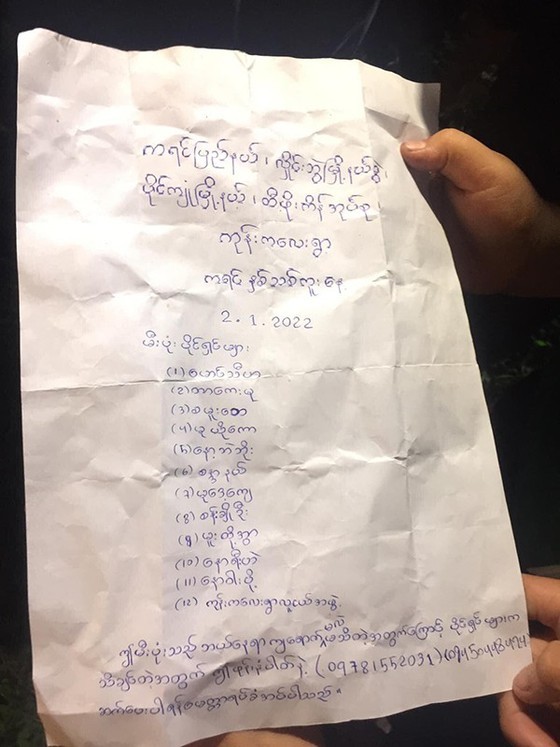 ကရင်ပြည်နယ်၊ လှိုင်းဘွဲ့မြို့နယ်ခွဲ၊
ပိုင်ကျုံမြို့နယ်၊ တီဖိုးကိန်အုပ်စု၊
ကုန်းကလေးရွာ
ကရင် နှစ်သစ်ကူးနေ့
2.1.2022
မီးပုံးပိုင်ရှင်များ
(၁) ဟော်သီဟာ
(၂) တာကေးယူ
(၃) စယူးတေ
(၄) ယူယိုကော
(၅) နော့ဘဲဘိုး
(၆) စန္ဒာနယ်
(၇) ယူဒေ့ကျေ
(၈) စန်းချိုဦး
(၉) ယူးတို့အွာ
(၁၀) နောရီးဟဲ
(၁၁) နောဝါးပို့
(၁၂) ကုန်းကလေးရွာလူငယ်အဖွဲ့
ဤမီးပုံးသည် ဘယ်နေရာ ကျရောက်မှန်းမသိတဲ့အတွက်ကြောင့် ပိုင်ရှင်များက
သိချင်တဲ့အတွက် ဤဖုန်းနံပါတ်နဲ့ (09781552031)
ဆက်ပေးပါရန်မေတ္တာရပ်ခံအပ်ပါသည်။